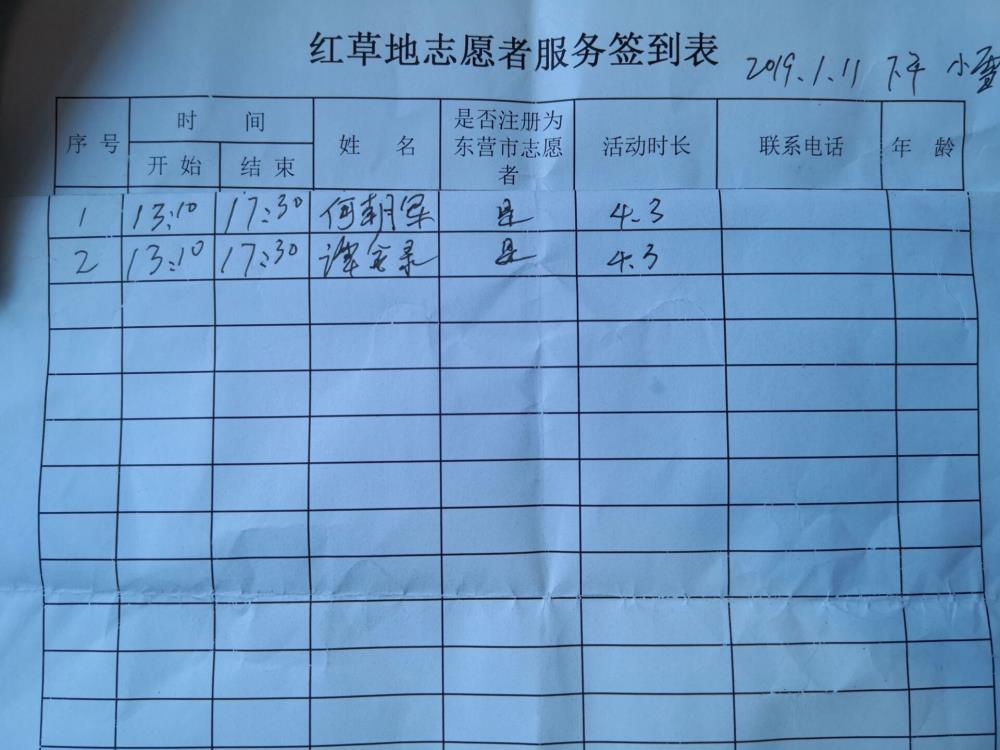 红草地志愿者服务签到表
2019.1.11 下午 小雪
序号 时间 姓名 是否注册为东营市志愿者 活动时长 联系电话 年龄
开始 结束
1 13:10 17:30 何朝军 是 4.3
2 13:10 17:30 是 4.3